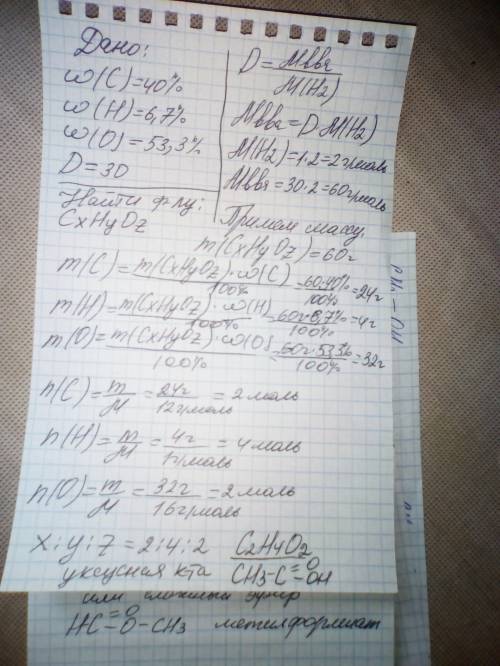 Дано:
ω(C)=40%
ω(H)=6,7%
ω(O)=53,3%
D=30
Найти ф-лу:
CxHyOz
D=Mвва/M(H2)
Mвва=D·M(H2)
M(H2)=1·2=2г/моль
Mввя=30·2=60г/моль
Примем массу:
m(CxHyOz)=60г
m(C)=m(CxHyOz)·ω(C)/100%=60·40%/100%=24г
m(H)=m(CxHyOz)·ω(H)/100%=60г·6,7%/100%=4г
m(O)=m(CxHyOz)·ω(O)/100%=60г·53,3%/100%=32г
n(C)=m/M=24г/12г/моль=2моль
n(H)=m/M=4г/1г/моль=4моль
n(O)=m/M=32г/16г/моль=2моль
x:y:z=2:4:2 C2H4O2
уксусная к-та CH3-C=O-OH
или сложный эфир
HC=O-O-CH3 метилформиат